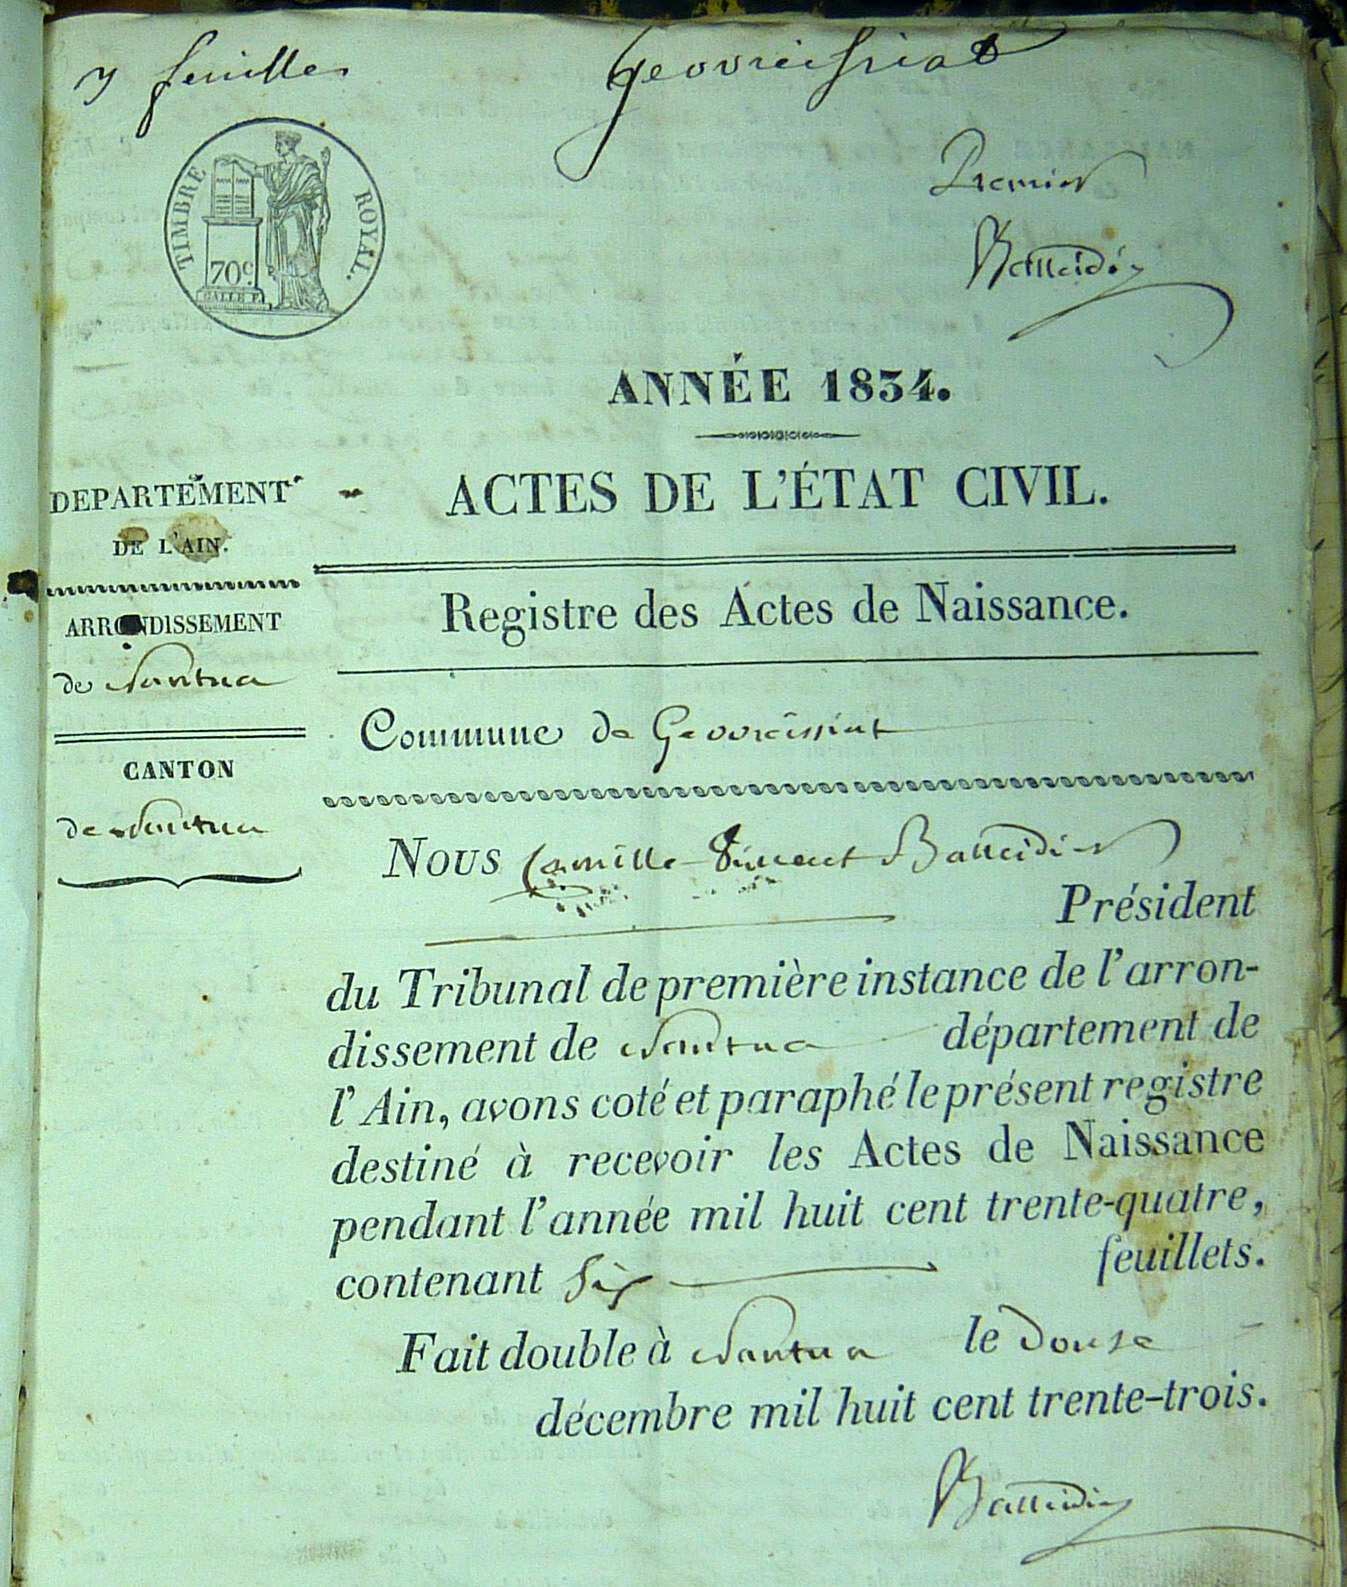 7 feuilles
Geovreissiat
Premier
TIMBRE ROYAL.
70c
ANNÉE 1834.
DEPARTEMENT
DE L'AIN.
ACTES DE L'ÉTAT CIVIL.
Registre des Actes de Naissance.
ARRONDISSEMENT
de Nantua
Commune de Geovreissiat
CANTON
de Nantua
Nous Camille Vincent
Président
du Tribunal de première instance de l'arron-
dissement de Nantua département de
l'Ain, avons coté et paraphé le présent registre
destiné à recevoir les Actes de Naissance
pendant l'année mil huit cent trente-quatre,
contenant Six feuillets.
Fait double à Nantua le Douze
décembre mil huit cent trente-trois.